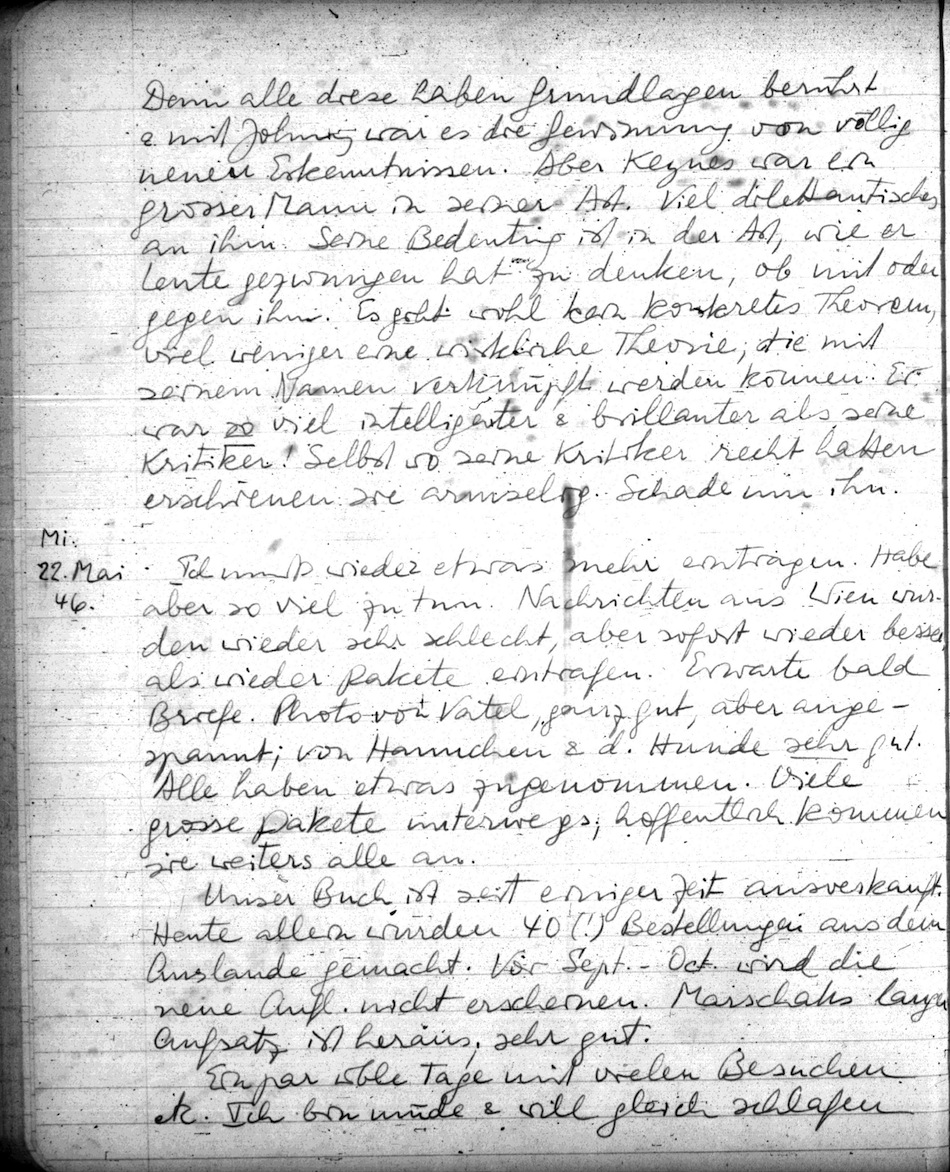 Denn alle diese haben Grundlagen berührt
& mit Johnny war es die Gewinnung von völlig
neuen Erkenntnissen. Aber Keynes war ein
grosser Mann in seiner Art. Viel dilettantisches
an ihm. Seine Bedeutung ist in der Art, wie er
Leute gezwungen hat zu denken, ob mit oder
gegen ihn. Es gibt wohl kein konkretes Theorem,
viel weniger eine wirkliche Theorie, die mit
seinem Namen verknüpft werden können. Er
war so viel intelligenter & brillanter als seine
Kritiker! Selbst wo seine Kritiker recht hatten
erschienen sie armselig. Schade um ihn.
Mi.
22. Mai
46.
Ich muss wieder etwas mehr eintragen. Habe
aber so viel zu tun. Nachrichten aus Wien wur-
den wieder sehr schlecht, aber sofort wieder besser,
als wieder Pakete eintrafen. Erwarte bald
Briefe. Photo von Vatel, ganz gut, aber ange-
spannt; von Hannchen & d. Hunde sehr gut.
Alle haben etwas zugenommen. Viele
grosse Pakete unterwegs; hoffentlich kommen
sie weiters alle an.
Unser Buch ist seit einiger Zeit ausverkauft.
Heute allein wurden 40 (!) Bestellungen aus dem
Auslande gemacht. Vor Sept. - Oct. wird die
neue Aufl. nicht erscheinen. Marschaks langer
Aufsatz ist heraus, sehr gut.
Ein par üble Tage mit vielen Besuchen
etc. Ich bin müde & will gleich schlafen